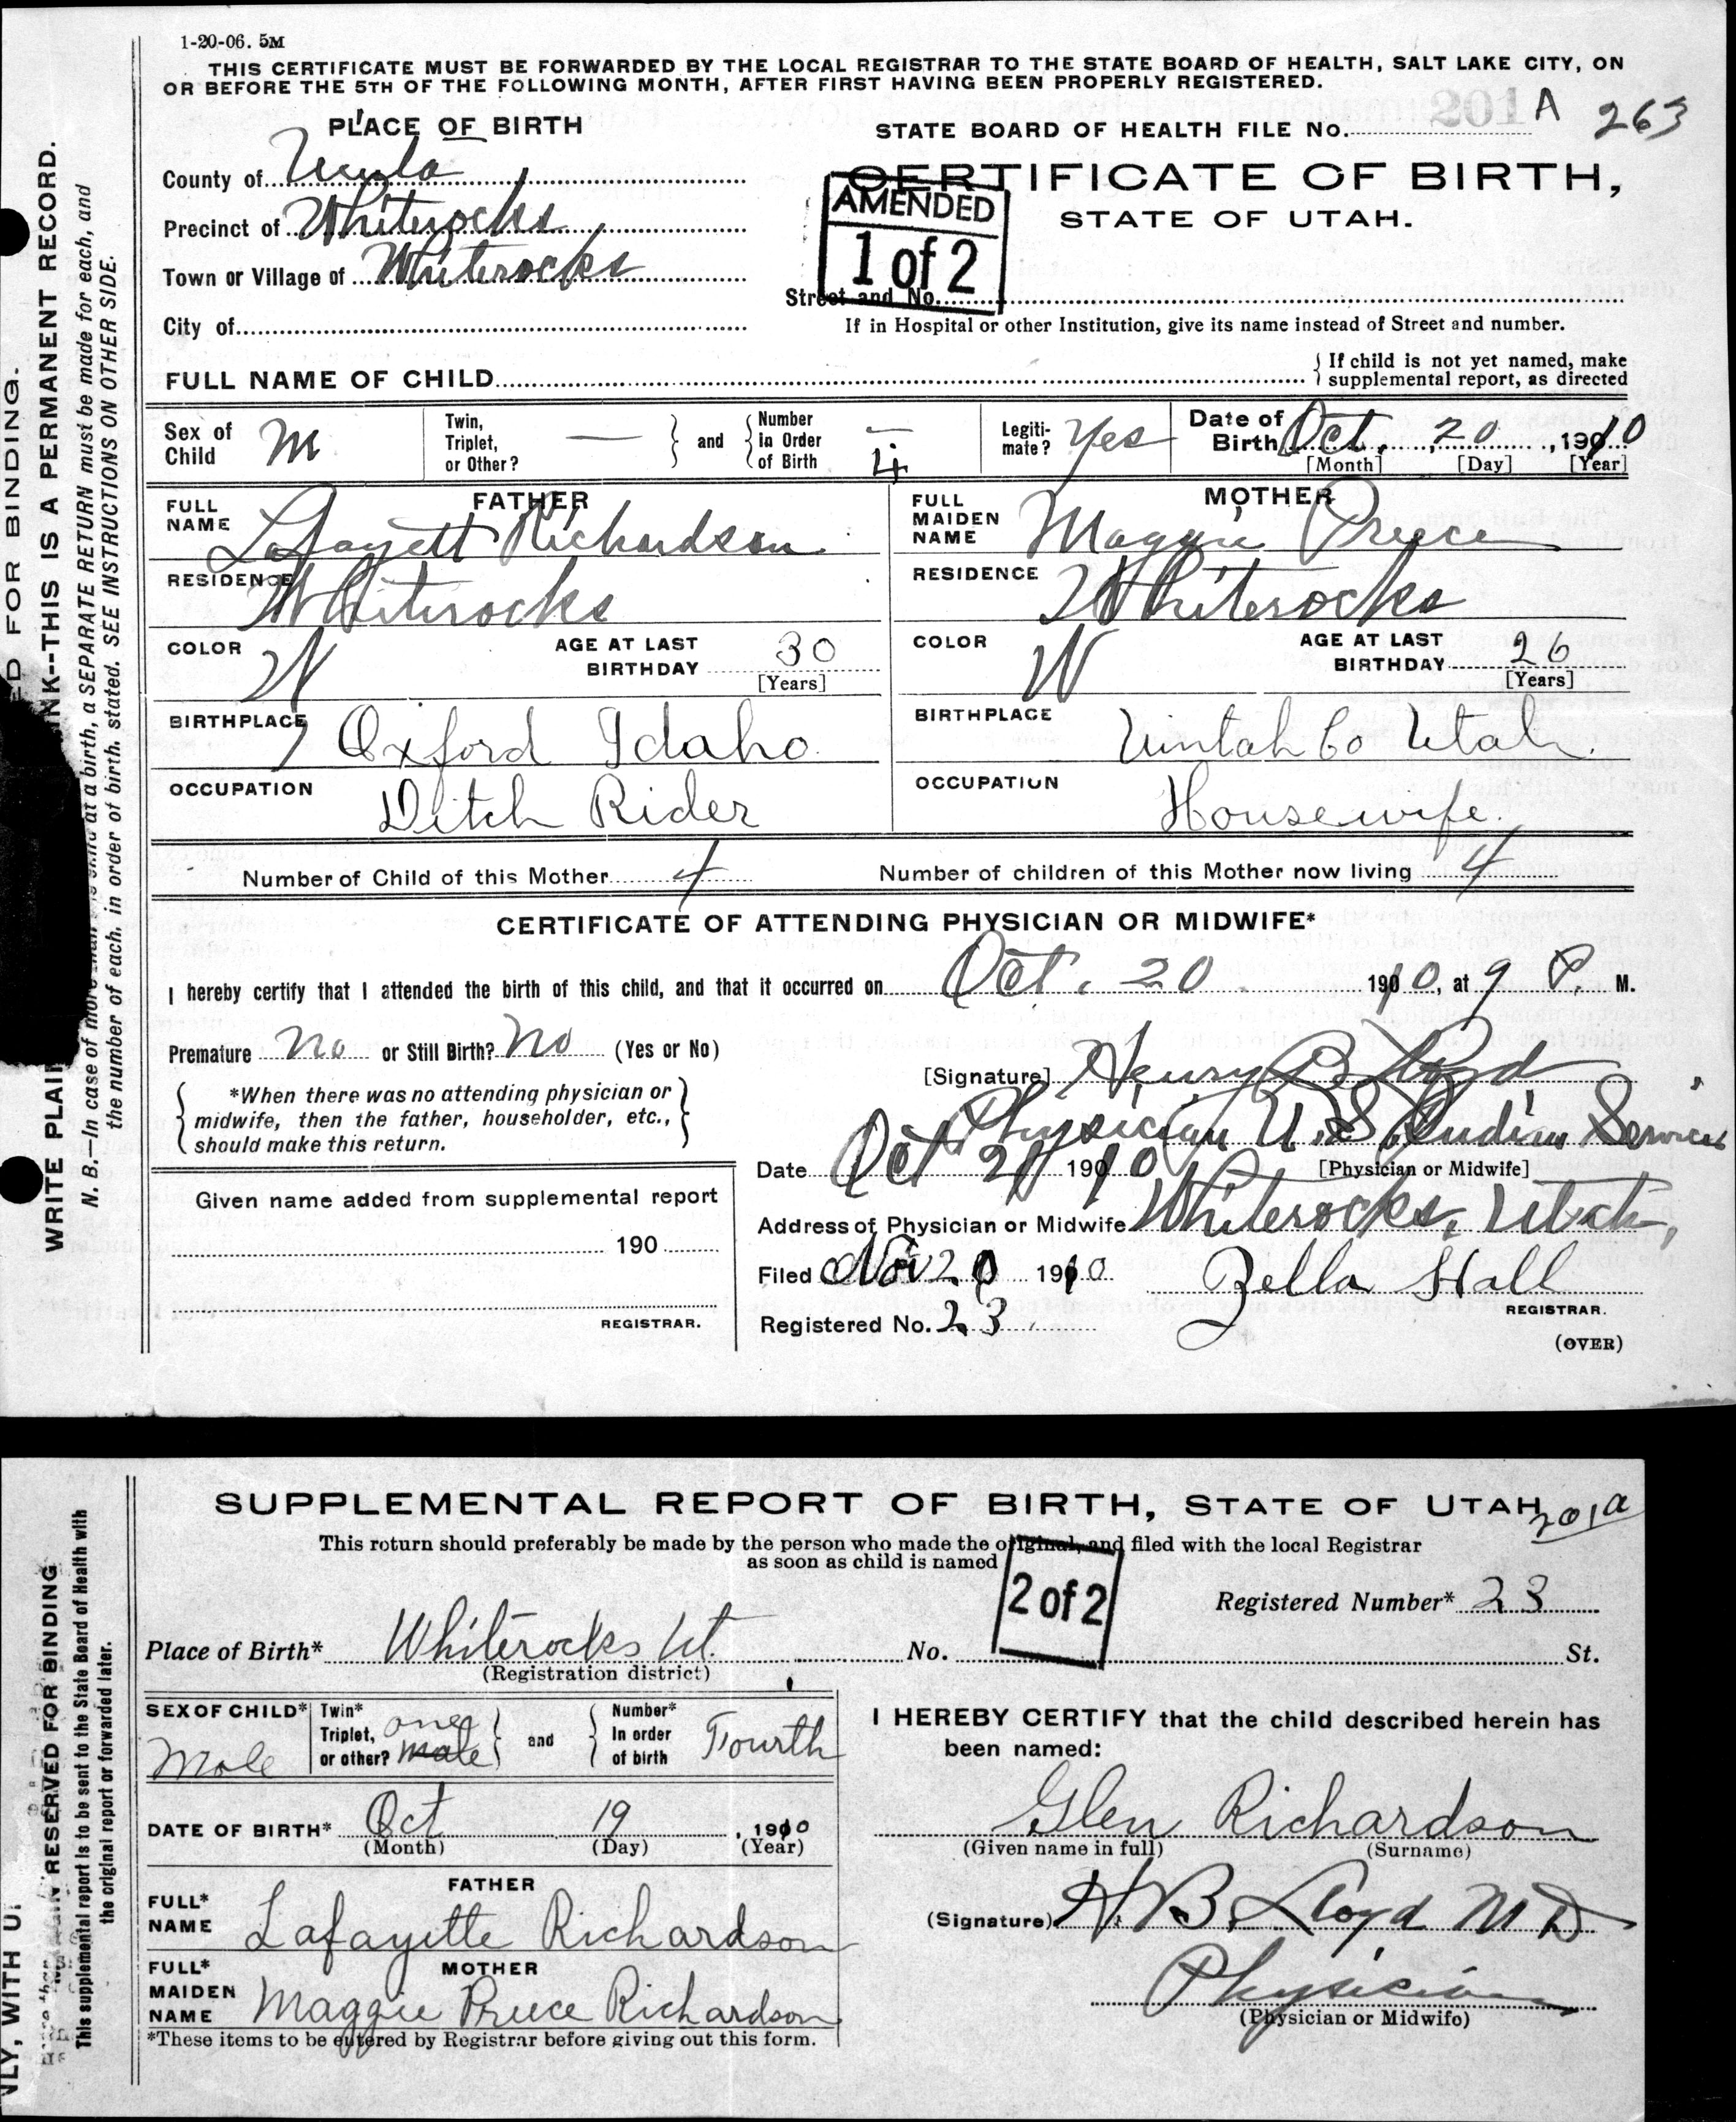 1-20-06. 5M
THIS CERTIFICATE MUST BE FORWARDED BY THE LOCAL REGISTRAR TO THE STATE BOARD OF HEALTH, SALT LAKE CITY, ON
OR BEFORE THE 5TH OF THE FOLLOWING MONTH, AFTER FIRST HAVING BEEN PROPERLY REGISTERED.
PLACE OF BIRTH
STATE BOARD OF HEALTH FILE No. 201 A 263
County of
CERTIFICATE OF BIRTH,
STATE OF UTAH.
AMENDED
1 of 2
Precinct of Whiterocks
Town or Village of Whiterocks
Street and No.
City of
If in Hospital or other Institution, give its name instead of Street and number.
FULL NAME OF CHILD
{ If child is not yet named, make
supplemental report, as directed
Sex of Child M
Twin, Triplet, or Other? — } and { Number in Order of Birth — 4
Legitimate? Yes
Date of Birth Oct. 20, 1910
[Month] [Day] [Year]
FATHER
FULL NAME Lafayett Richardson
RESIDENCE Whiterocks
COLOR W AGE AT LAST BIRTHDAY 30
[Years]
BIRTHPLACE Oxford Idaho.
OCCUPATION Ditch Rider
MOTHER
FULL MAIDEN NAME Maggie Preece
RESIDENCE Whiterocks
COLOR W AGE AT LAST BIRTHDAY 26
[Years]
BIRTHPLACE Uintah Co Utah.
OCCUPATION Housewife.
Number of Child of this Mother 4 Number of children of this Mother now living 4
CERTIFICATE OF ATTENDING PHYSICIAN OR MIDWIFE*
I hereby certify that I attended the birth of this child, and that it occurred on Oct. 20 1910, at 9 P. M.
Premature No or Still Birth? No (Yes or No)
{ *When there was no attending physician or
midwife, then the father, householder, etc.,
should make this return. }
[Signature] Henry B Lloyd
Physician U.S. Indian Service
Date Oct 21 1910 [Physician or Midwife]
Address of Physician or Midwife Whiterocks, Utah,
Filed Nov 20 1910 Zella Hall
REGISTRAR.
Registered No. 23
(OVER)
Given name added from supplemental report
190
REGISTRAR.
FOR BINDING.
WRITE PLAIN INK--THIS IS A PERMANENT RECORD.
N. B.—In case of more than one child at a birth, a SEPARATE RETURN must be made for each, and
the number of each, in order of birth, stated. SEE INSTRUCTIONS ON OTHER SIDE.
SUPPLEMENTAL REPORT OF BIRTH, STATE OF UTAH
201a
This return should preferably be made by the person who made the original, and filed with the local Registrar
as soon as child is named
2 of 2
Registered Number* 23
Place of Birth* Whiterocks Ut. No. St.
(Registration district)
SEX OF CHILD* Male
Twin* Triplet, or other? one male } and { Number* In order of birth Fourth
DATE OF BIRTH* Oct 19, 1910
(Month) (Day) (Year)
FATHER
FULL* NAME Lafayette Richardson
MOTHER
FULL* MAIDEN NAME Maggie Preece Richardson
*These items to be entered by Registrar before giving out this form.
I HEREBY CERTIFY that the child described herein has
been named:
Glen Richardson
(Given name in full) (Surname)
(Signature) H. B. Lloyd M D
Physician
(Physician or Midwife)
RESERVED FOR BINDING
This supplemental report is to be sent to the State Board of Health with
the original report or forwarded later.